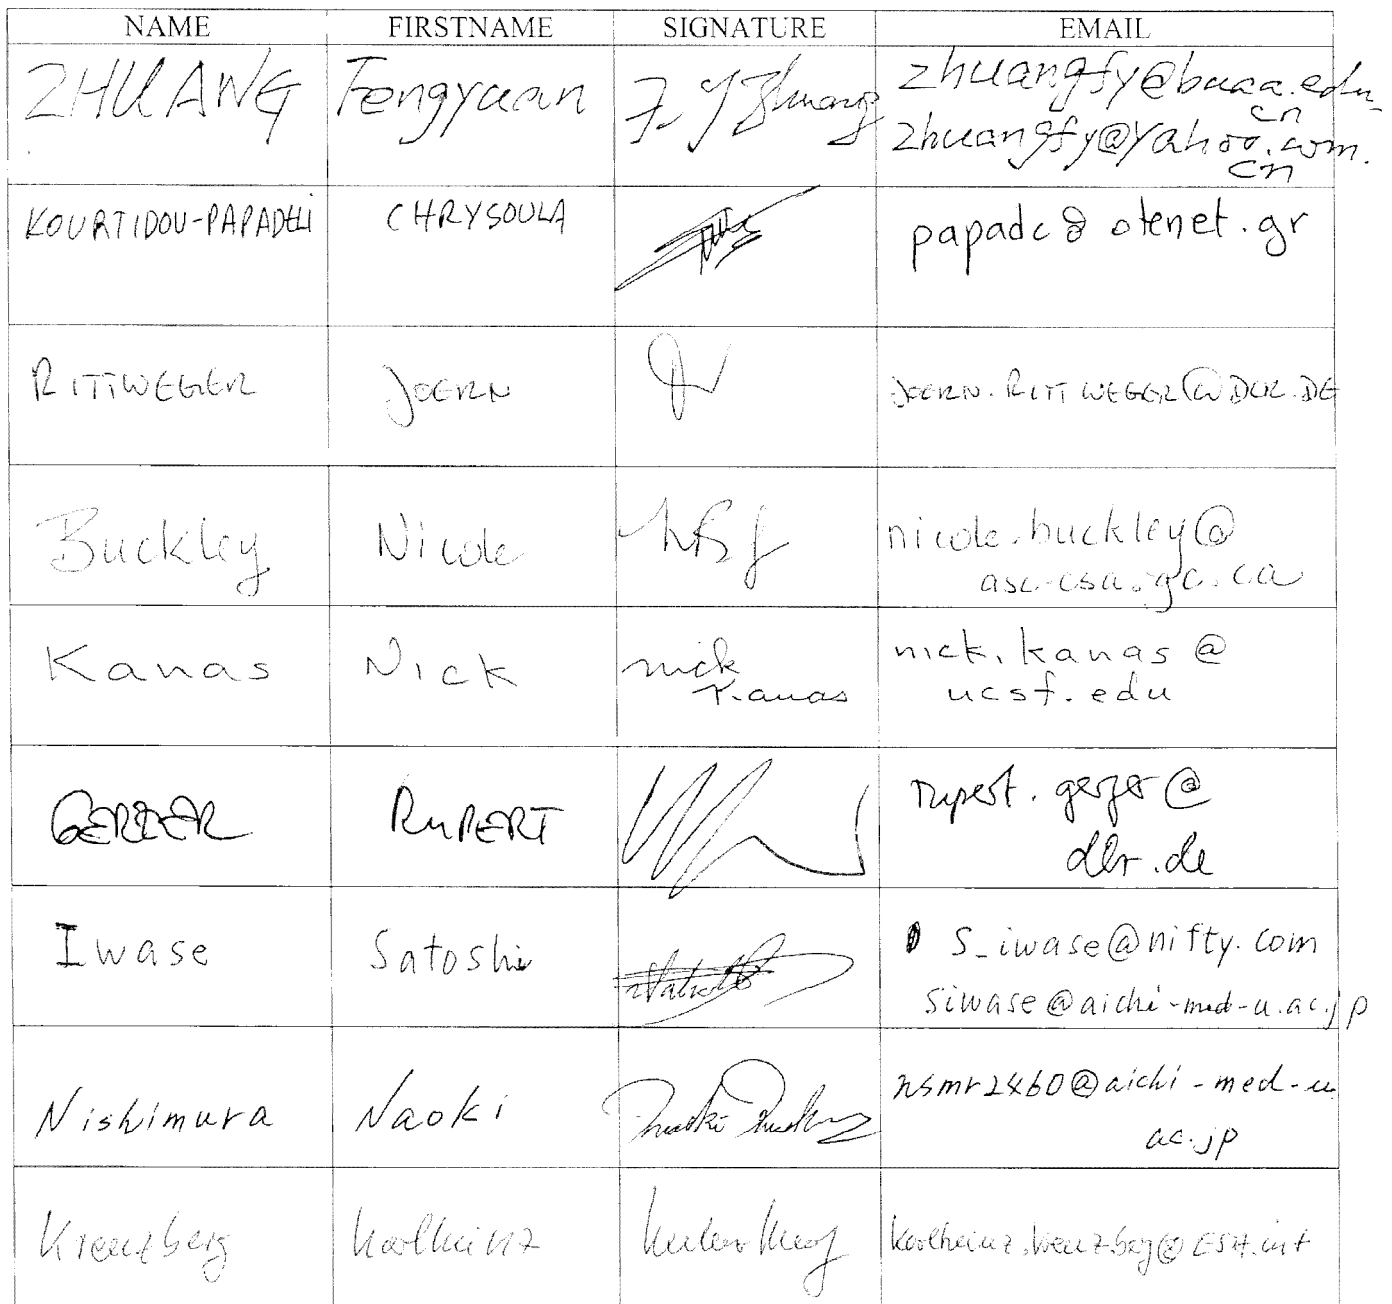 NAME FIRSTNAME SIGNATURE EMAIL
ZHUANG Fengyuan F. Y Zhuang zhuangfy@buaa.edu.cn
zhuangfy@yahoo.com.cn
KOURTIDOU-PAPADELI CHRYSOULA papadc@otenet.gr
RITTWEGER JOERN JOERN.RITTWEGER@DLR.DE
Buckley Nicole nicole.buckley@
asc-csa.gc.ca
Kanas Nick nick nick.kanas@
Kanas ucsf.edu
GERZER RUPERT rupert.gerzer@
dlr.de
Iwase Satoshi s_iwase@nifty.com
siwase@aichi-med-u.ac.jp
Nishimura Naoki nsmr2460@aichi-med-u.
ac.jp
Kreuzberg Karlheinz karlheinz.kreuzberg@ESA.int